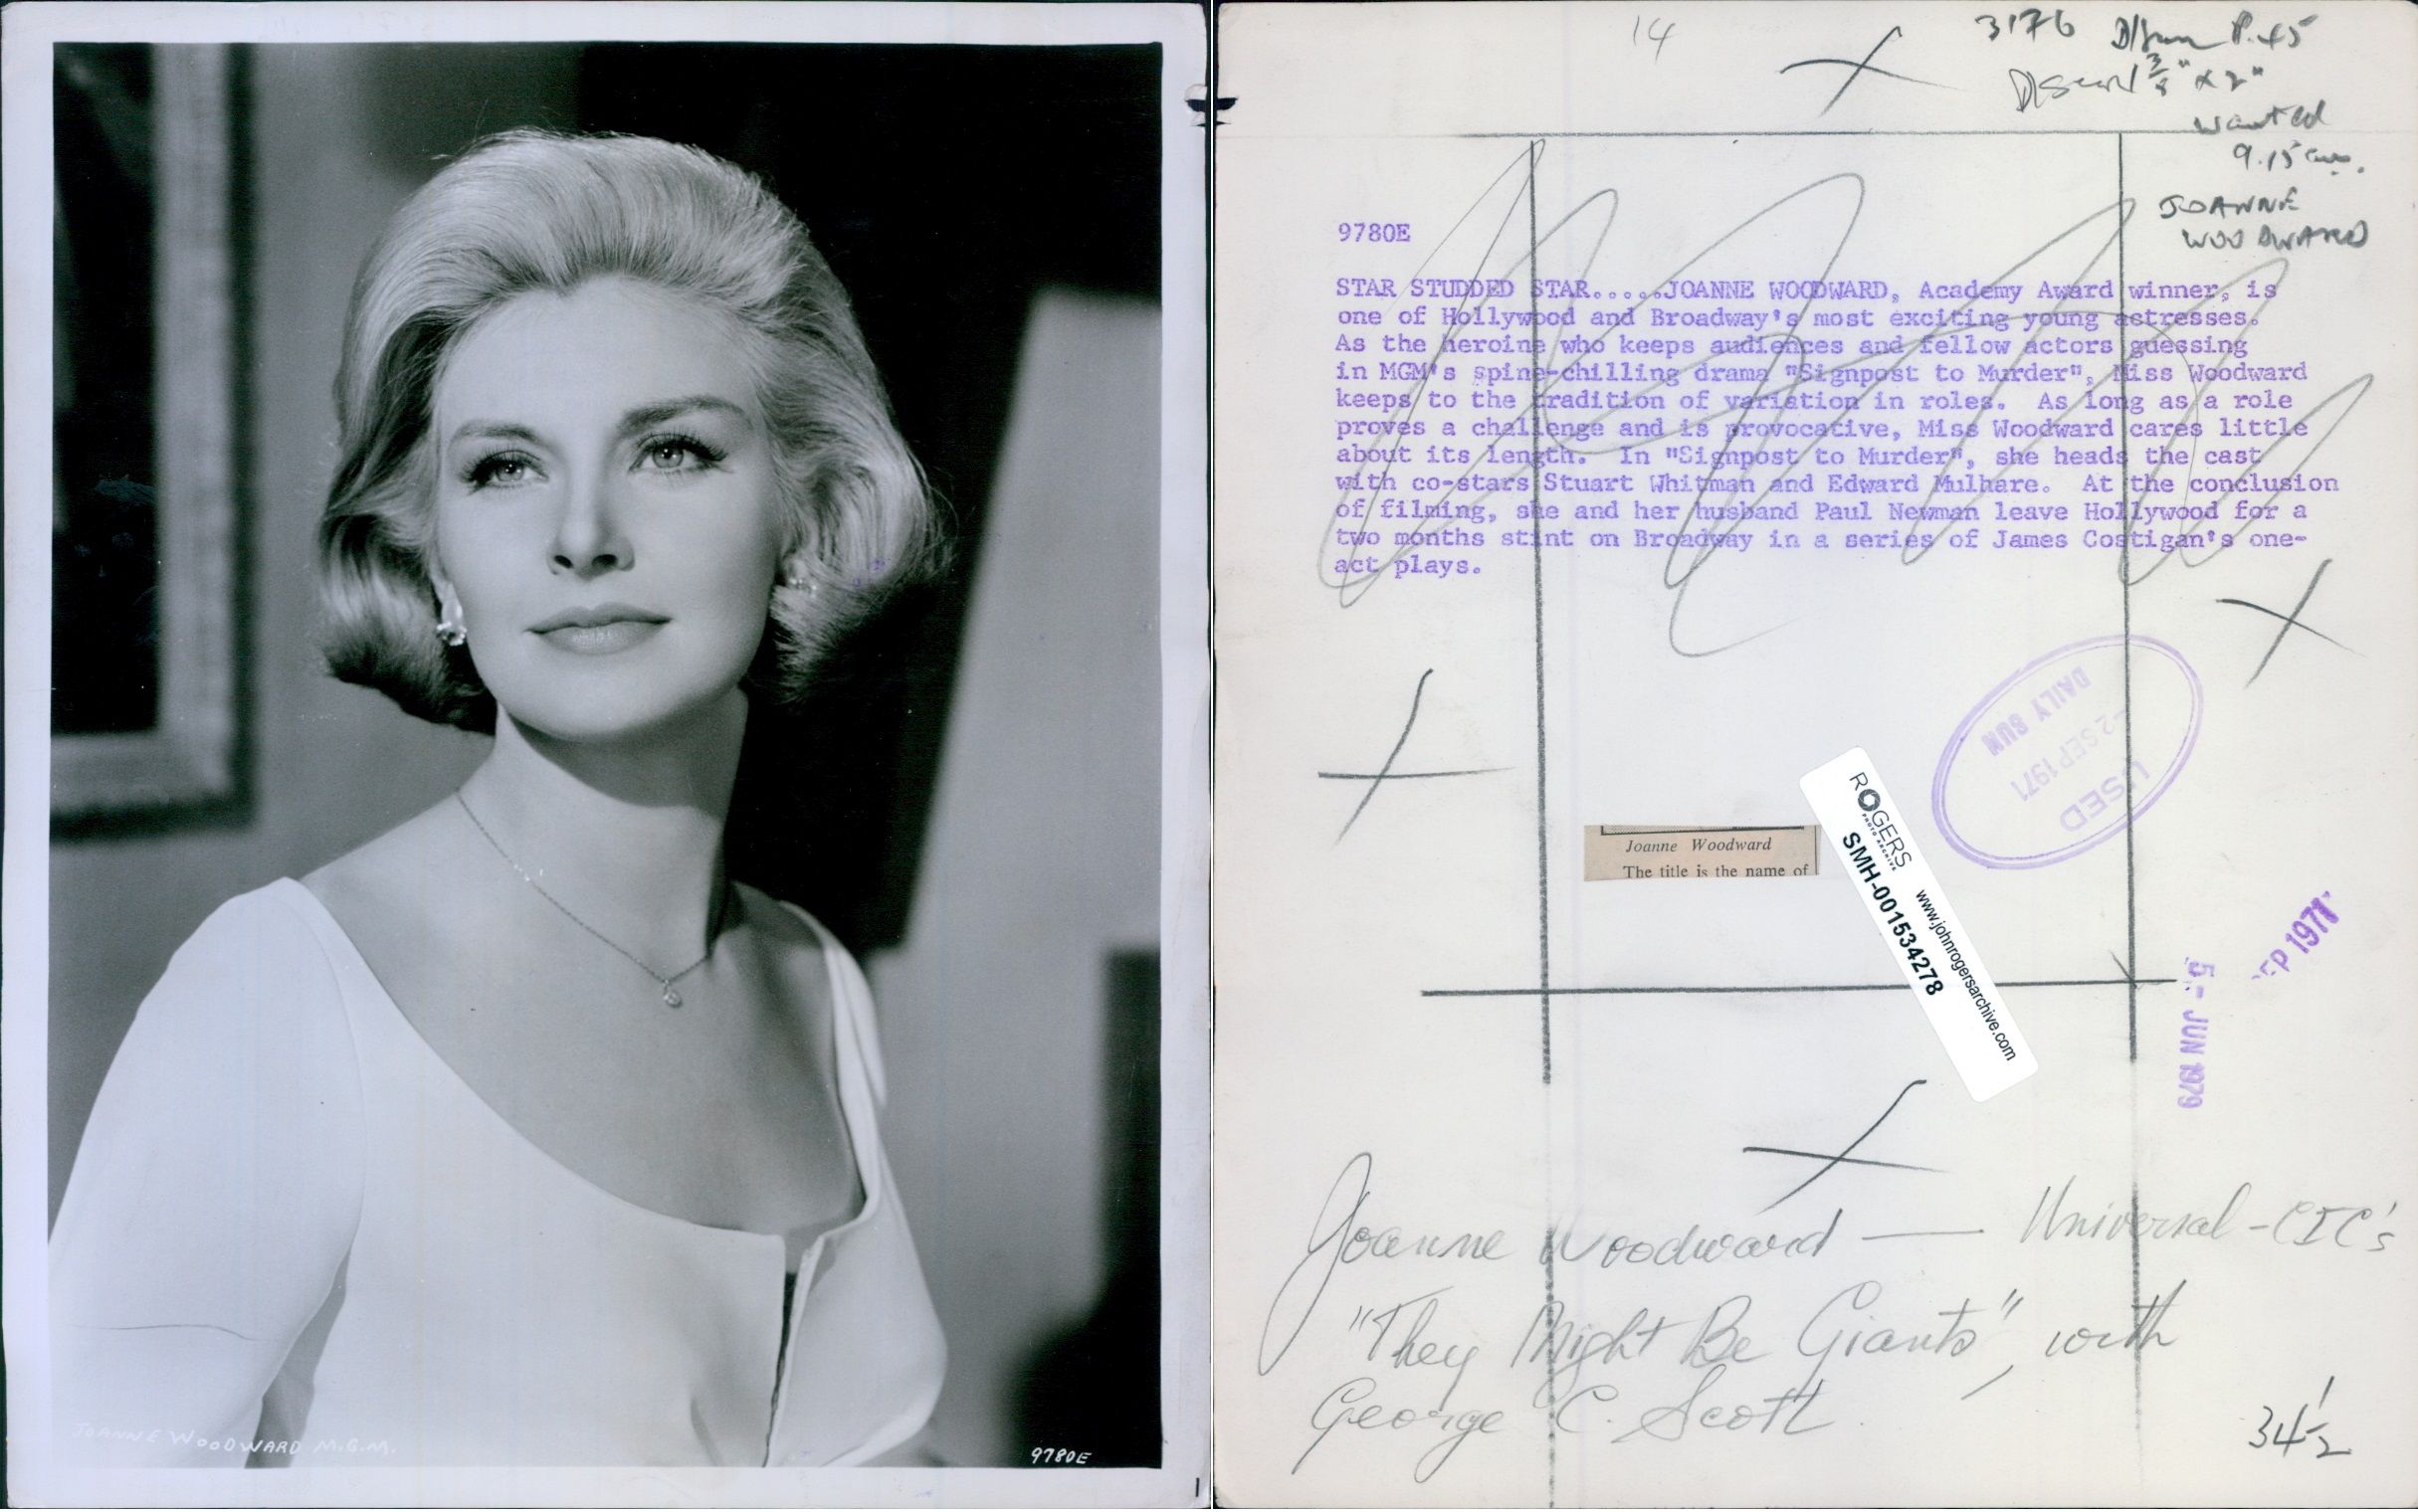 JOANNE WOODWARD M.G.M.
9780E
14
3176
P.45
x 2"
wanted
9.15
JOANNE
WOODWARD
9780E
STAR STUDDED STAR.....JOANNE WOODWARD, Academy Award winner, is
one of Hollywood and Broadway's most exciting young actresses.
As the heroine who keeps audiences and fellow actors guessing
in MGM's spine-chilling drama "Signpost to Murder", Miss Woodward
keeps to the tradition of variation in roles. As long as a role
proves a challenge and is provocative, Miss Woodward cares little
about its length. In "Signpost to Murder", she heads the cast
with co-stars Stuart Whitman and Edward Mulhare. At the conclusion
of filming, she and her husband Paul Newman leave Hollywood for a
two months stint on Broadway in a series of James Costigan's one-
act plays.
USED
-2 SEP 1971
DAILY SUN
Joanne Woodward
The title is the name of
ROGERS
PHOTO ARCHIVE
SMH-001534278
www.johnrogersarchive.com
EP 1971
5- JUN 1979
Joanne Woodward — Universal-CIC's
"They Might Be Giants", with
George C. Scott
34 1/2